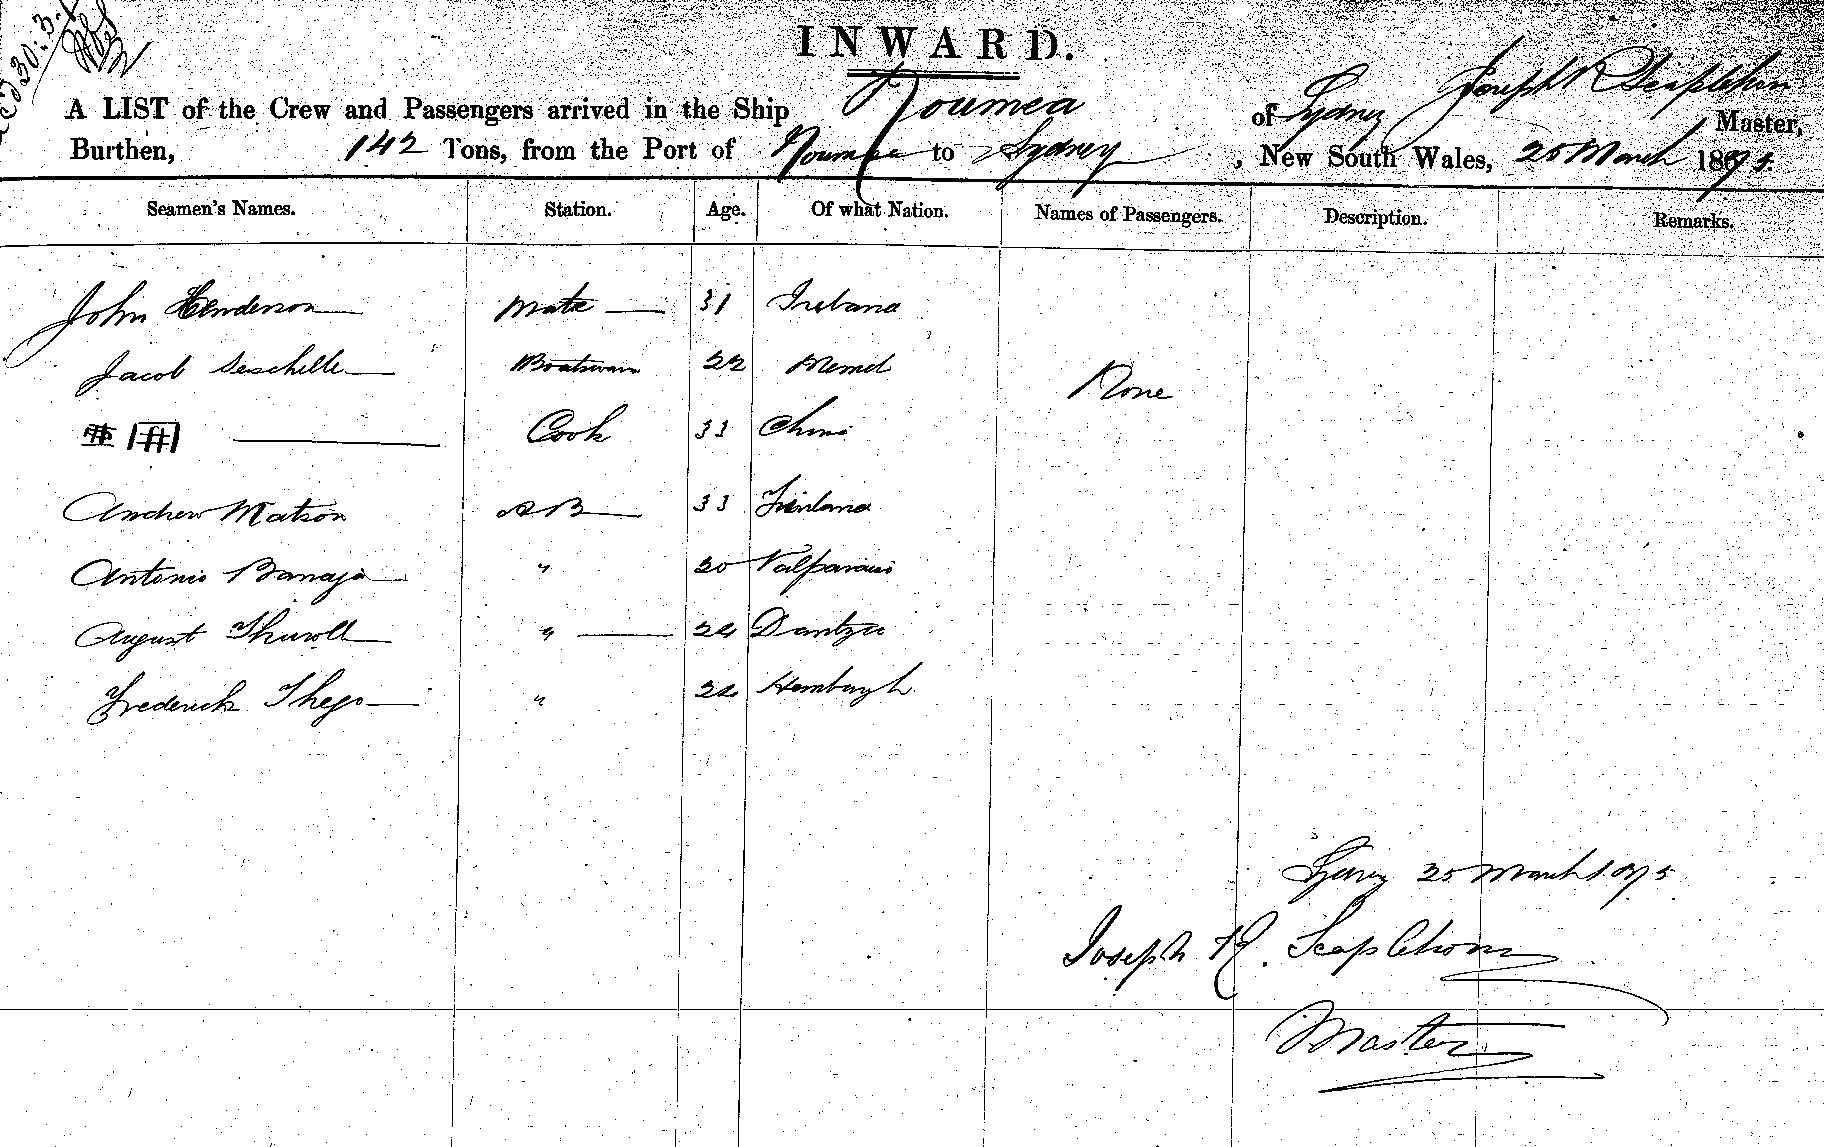 30.3.
INWARD.
A LIST of the Crew and Passengers arrived in the Ship Noumea of Sydney Joseph R Stapleton Master,
Burthen, 142 Tons, from the Port of Noumea to Sydney, New South Wales, 25 March 1875.
Seamen's Names. Station. Age. Of what Nation. Names of Passengers. Description. Remarks.
John Henderson Mate 31 Ireland
Jacob Boatswain 22 Memel None
Cook 33 China
Andrew Matson AB 33 Finland
Antonio " 20 Valparaiso
August " 24 Dantzic
Frederick " 22 Hamburgh
Sydney 25 March 1875
Joseph R. Stapleton
Master